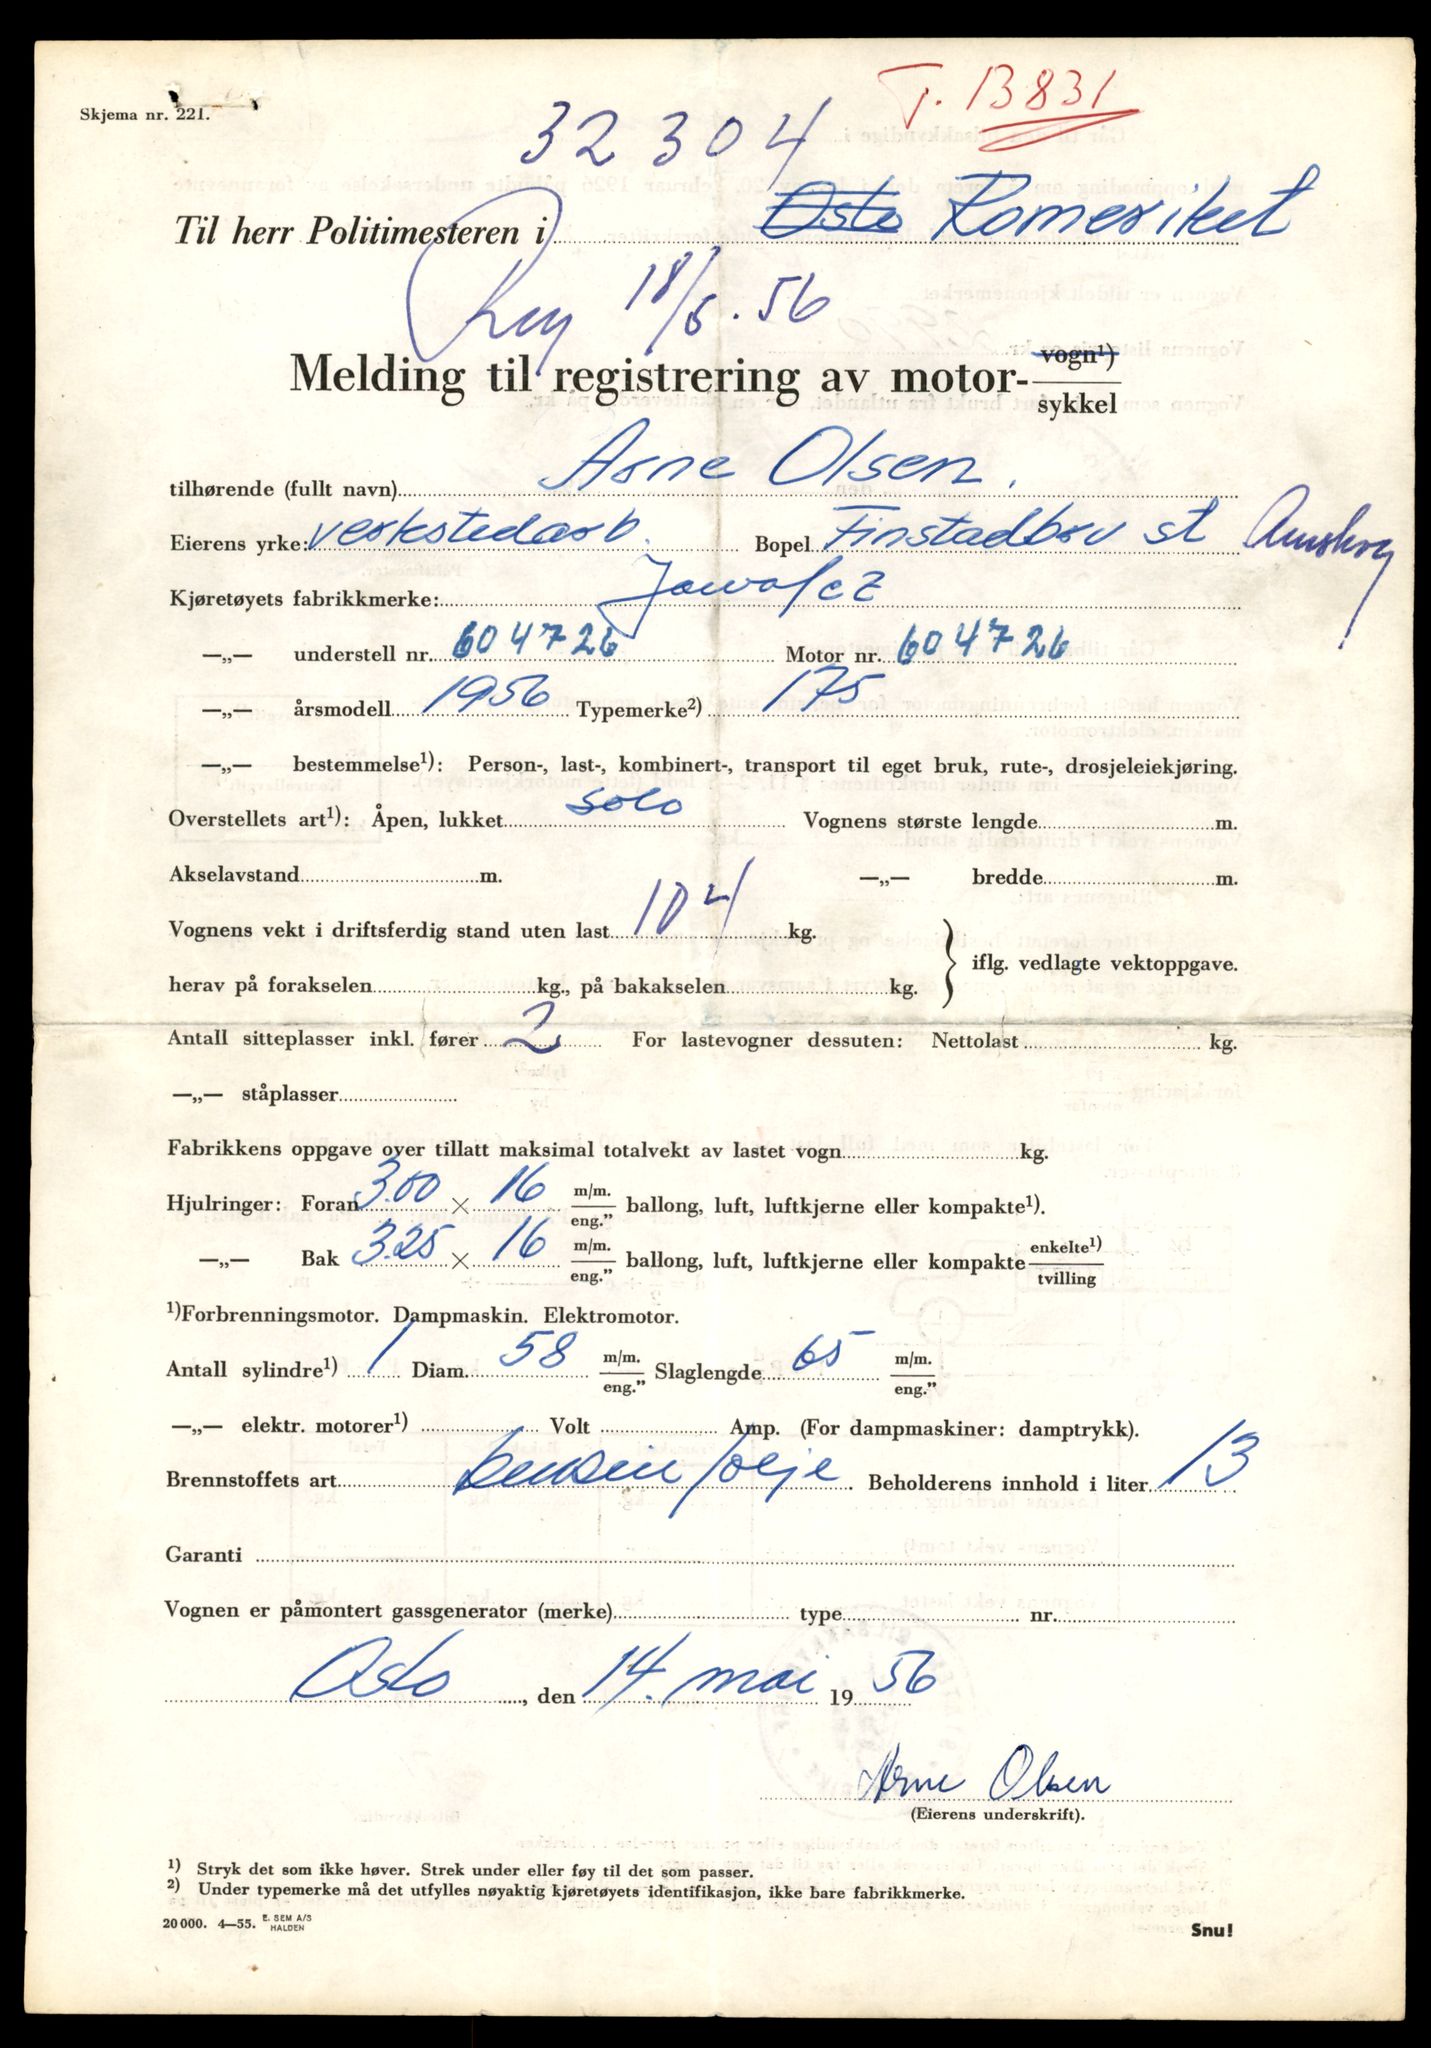 Skjema nr. 221.
T. 13831
32304
Til herr Politimesteren i Oslo Romeriket
Reg 18/5.56
Melding til registrering av motor- vogn¹) / sykkel
tilhørende (fullt navn) Arne Olsen.
Eierens yrke: verkstedarb. Bopel Finstadbru st Aurskog
Kjøretøyets fabrikkmerke: Jawa/cz
—„— understell nr. 604726 Motor nr. 604726
—„— årsmodell 1956 Typemerke²) 175
—„— bestemmelse¹): Person-, last-, kombinert-, transport til eget bruk, rute-, drosjeleiekjøring.
Overstellets art¹): Åpen, lukket solo Vognens største lengde m.
Akselavstand m. —„— bredde m.
Vognens vekt i driftsferdig stand uten last 104 kg.
iflg. vedlagte vektoppgave.
herav på forakselen kg., på bakakselen kg.
Antall sitteplasser inkl. fører 2 For lastevogner dessuten: Nettolast kg.
—„— ståplasser
Fabrikkens oppgave over tillatt maksimal totalvekt av lastet vogn kg.
Hjulringer: Foran 3.00 × 16 m/m. / eng.” ballong, luft, luftkjerne eller kompakte¹).
—„— Bak 3.25 × 16 m/m. / eng.” ballong, luft, luftkjerne eller kompakte enkelte¹) / tvilling
¹)Forbrenningsmotor. Dampmaskin. Elektromotor.
Antall sylindre¹) 1 Diam. 58 m/m. / eng.” Slaglengde 65 m/m. / eng.”
—„— elektr. motorer¹) Volt Amp. (For dampmaskiner: damptrykk).
Brennstoffets art bensin/olje. Beholderens innhold i liter 13
Garanti
Vognen er påmontert gassgenerator (merke) type nr.
Oslo, den 14. mai 1956
Arne Olsen
(Eierens underskrift).
¹) Stryk det som ikke høver. Strek under eller føy til det som passer.
²) Under typemerke må det utfylles nøyaktig kjøretøyets identifikasjon, ikke bare fabrikkmerke.
20 000. 4—55. E. SEM A/S HALDEN
Snu!